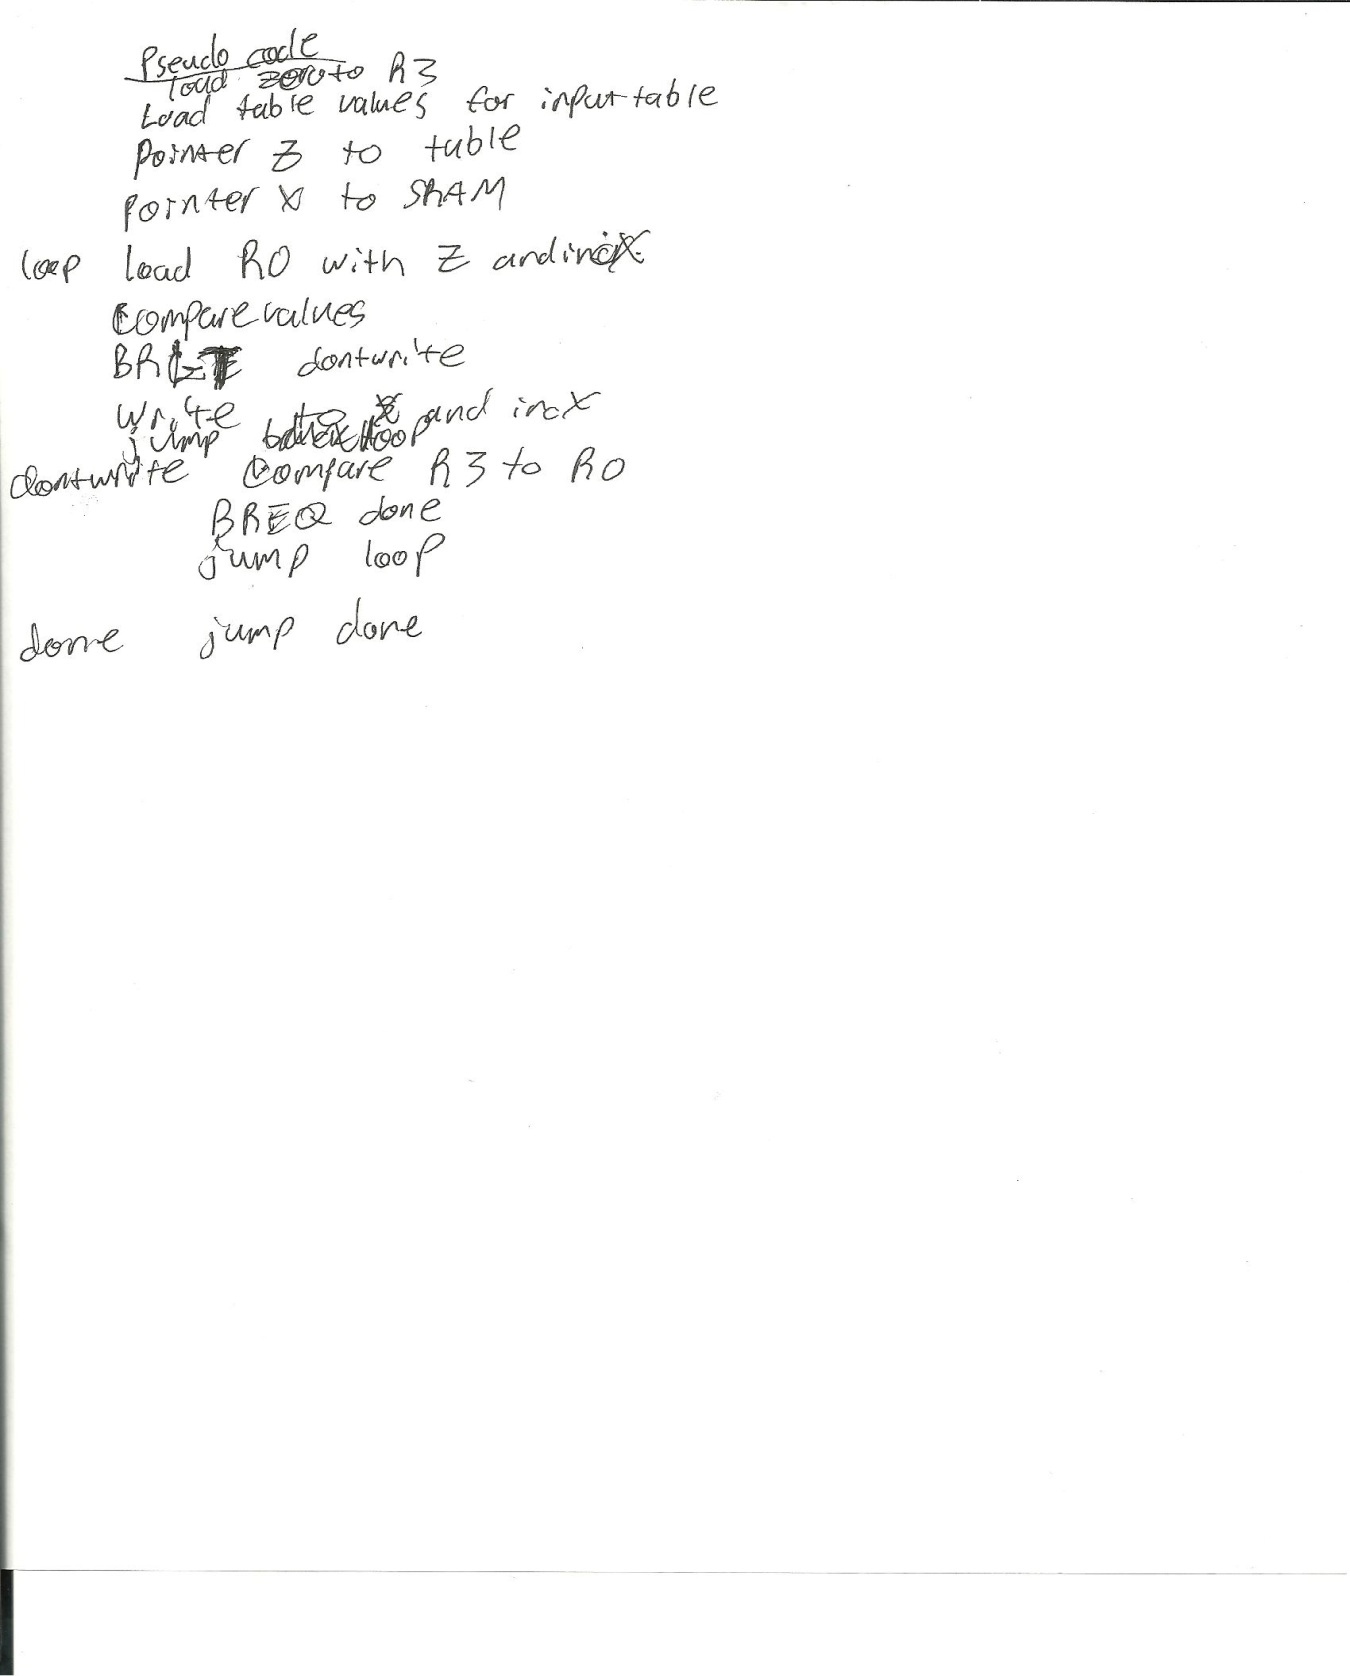 Pseudo code
load zero to R3
Load table values for input table
Pointer Z to table
Pointer X to SRAM
loop load R0 with Z and inc X
Compare values
BRLT dontwrite
Write to X and inc X
jump loop
dontwrite Compare R3 to R0
BREQ done
jump loop
done jump done